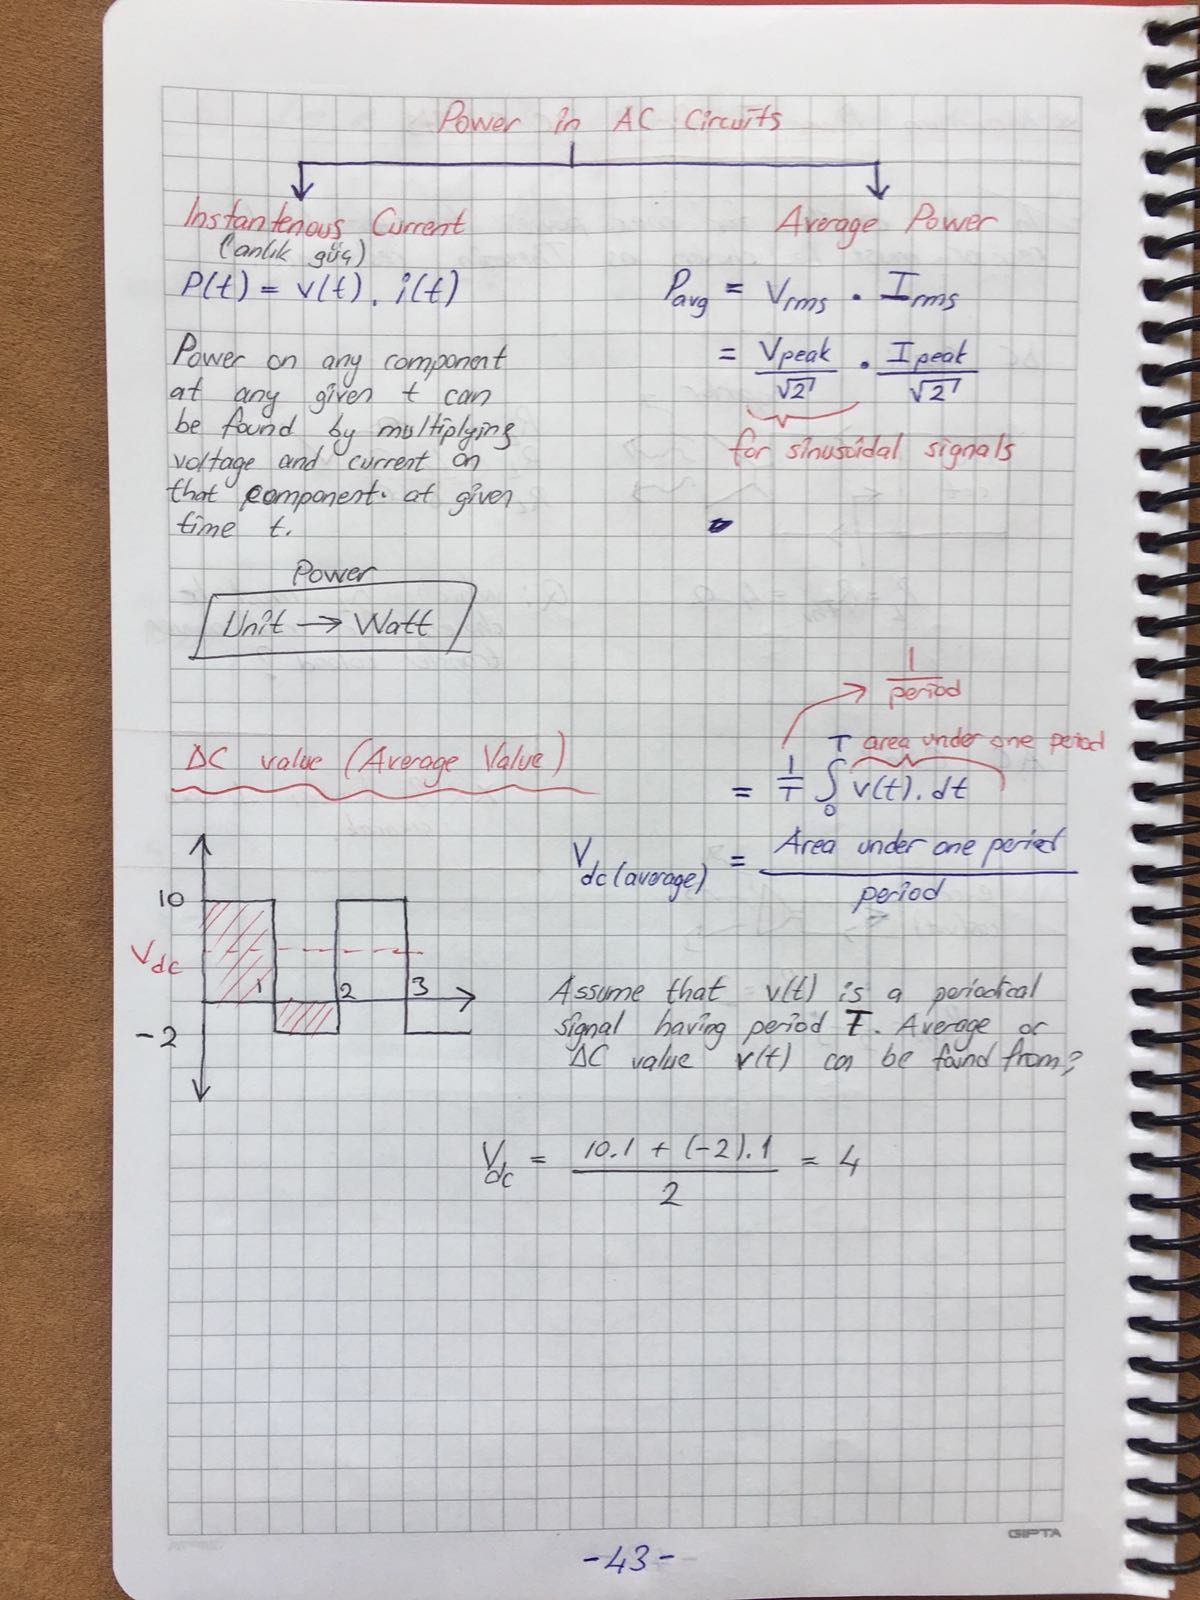 Power in AC Circuits
Instantenous Current
(anlık güç)
P(t) = v(t) . i(t)
Power on any component
at any given t can
be found by multiplying
voltage and current on
that component. at given
time t.
Power
Unit → Watt
Average Power
Pavg = Vrms . Irms
= Vpeak/√2 . Ipeak/√2
for sinusoidal signals
DC value (Average Value)
1/period
area under one period
= 1/T ∫₀ᵀ v(t). dt
Vdc(average) = Area under one period / period
10
Vdc
-2
1 2 3
Assume that v(t) is a periodical
signal having period T. Average or
DC value v(t) can be found from;
Vdc = 10.1 + (-2).1 / 2 = 4
GIPTA
-43-